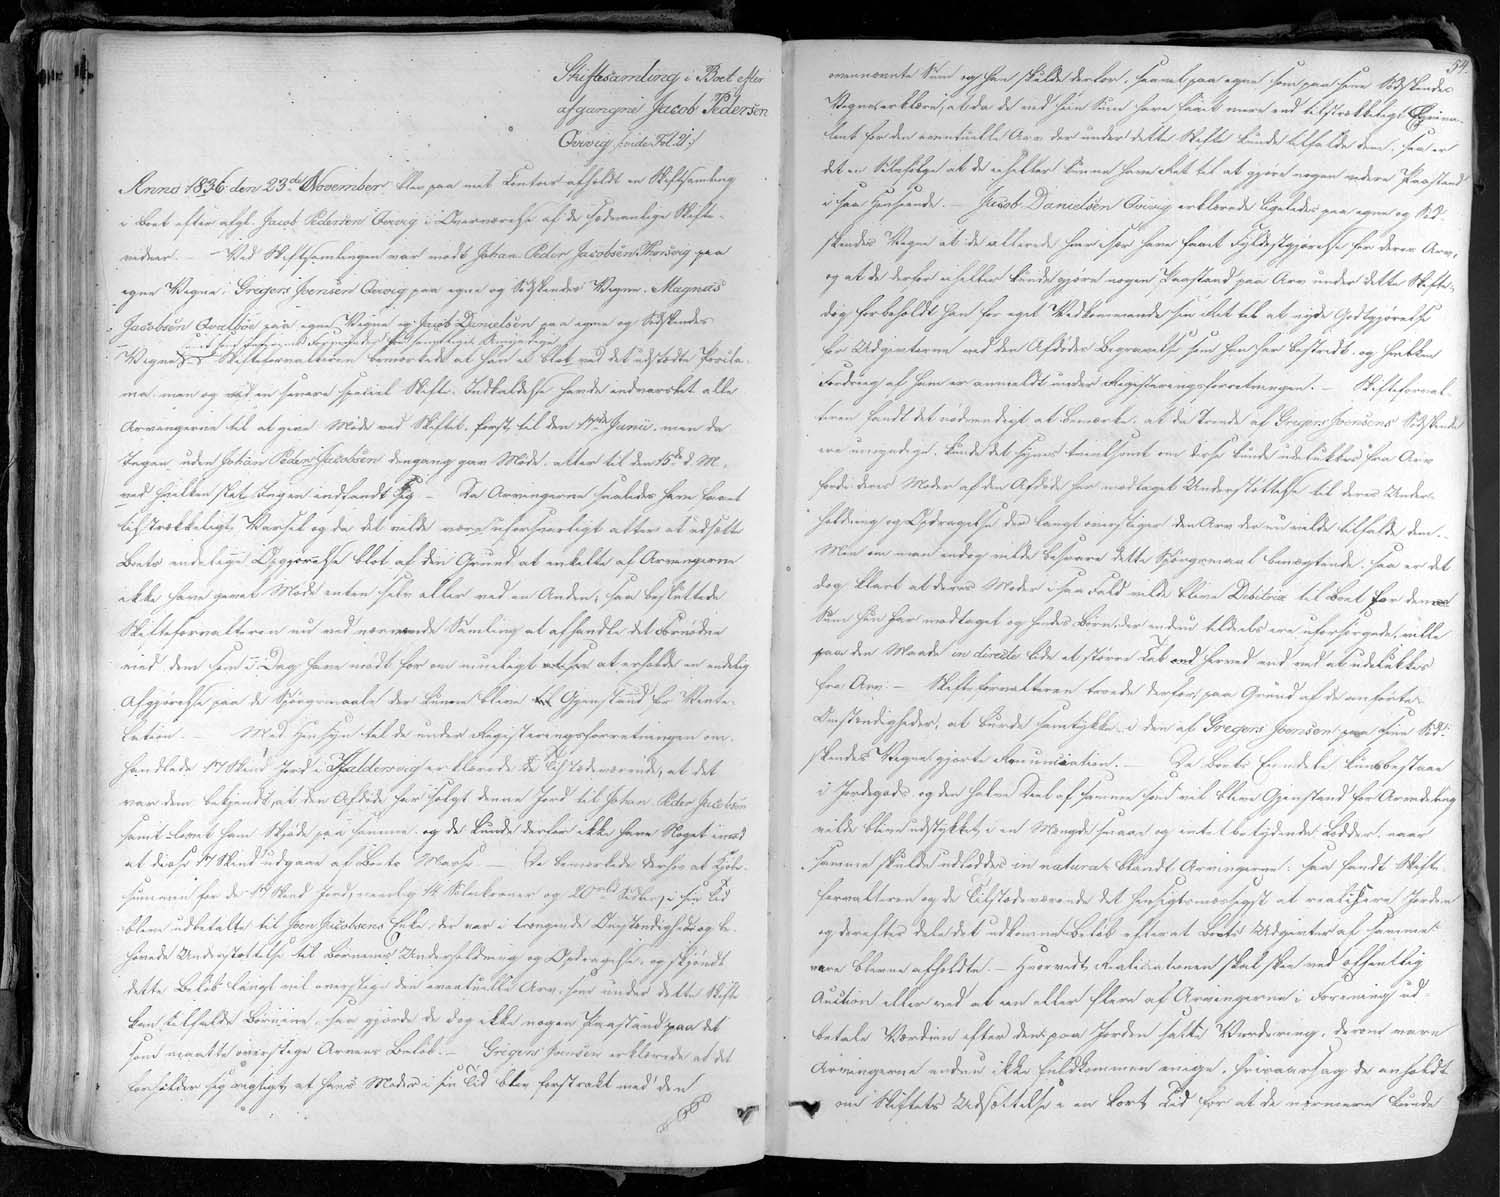 Skiftesamling i Boet efter
afgangne Jacob Pedersen
Qvivig (vide Fol. 21.)
Anno 1836 den 23de November blev paa mit Contoir afholdt en Skiftesamling
i Boet efter afgl. Jacob Pedersen Qvivig i Overværelse af de sædvanlige Skifte-
vidner. — Ved Skiftesamlingen var mødt Johan Peder Jacobsen Thorsvig paa
egne Vegne, Gregers Joensen Qvivig paa egne og Sødskendes Vegne, Magnus
Jacobsen Qvalbøe paa egne Vegne og Jacob Danielsen paa egne og Sødskendes
Vegne Skifteforvalteren bemærkede at han ei blot ved det udstædte Procla-
ma, men og ved en senere speciel Skifte-Indkaldelse havde indvarslet alle
Arvingerne til at give Møde ved Skiftet, først til den 17de Junii, men da
Ingen uden Johan Peder Jacobsen dengang gav Møde, atter til den 15de d. M.,
ved hvilken sket Ingen indfandt sig — Da Arvingerne saaledes have havt
tilstrækkeligt Varsel og da det vilde være uforsvarligt atter at udsætte
Boets endelige Opgjørelse blot af den Grund at enkelte af Arvingerne
ikke have givet Møde enten selv eller ved en Anden, saa besluttede
Skifteforvalteren nu ved nærværende Samling at afhandle det Fornødne
med dem som i Dag have mødt for om mueligt at erholde en endelig
Afgjørelse paa de Spørgsmaale der kunne blive Gjenstand for Venti-
lation. — Med Hensyn til de under Registeringsforretningen om-
handlede 17 Skind Jord i Haldersvig erklærede de Tilstedeværende, at det
var dem bekjendt, at den Afdøde har solgt denne Jord til Johan Peder Jacobsen
samt lovet ham Skjøde paa samme, og de kunde derfor ikke have Noget imod
at disse 17 Skind udgaae af Boets Masse. — De bemærkede derhos at Kjøbe-
summen for de 17 Skind Jord, nemlig 14 Sølvkroner og 20 i sin Tid
bleve udbetalte til Joen Jacobsens Enke, der var i trængende Omstændigheder og be-
høvede Understøttelse til Børnenes Underholdning og Opdragelse, og skjøndt
dette Beløb langt vil overstige den eventuelle Arv, som under dette Skifte
kan tilfalde Børnene, saa gjorde de dog ikke nogen Paastand paa det
som maatte overstige Arvens Beløb. — Gregers Joensen erklærede at det
forholder sig rigtigt, at hans Moder i sin Tid blev forstrakt med den
54.
ovennævnte Sum og han skulde derfor, saavel paa egne som paa sine Sødskendes
Vegne erklære, at da de ved hiin Sum have havt mere end tilstrækkeligt Æqviva-
lent for den eventuelle Arv der under dette Skifte kunde tilfalde dem, saa er
det en Selvfølge at de ei heller kunne have Ret til at gjøre nogen videre Paastand
i saa Henseende. — Jacob Danielsen Qvivig erklærede ligeledes paa egne og Sød-
skendes Vegne at de allerede hver især have faaet Fyldestgjørelse for deres Arv,
og at de derfor ei heller kunde gjøre nogen Paastand paa Arv under dette Skifte,
dog forbeholdt han for eget Vedkommende sin Ret til at nyde Godtgjørelse
for Udgivterne ved den Afdødes Begravelse som han har bestridt, og hvilken
Fordring af ham er anmeldt under Registeringsforretningen. — Skifteforval-
teren fandt det nødvendigt at bemærke, at da Trende af Gregers Joensens Sødskende
ere umyndige, kunde det synes tvivlsomt om disse kunde udelukkes fra Arv
fordi deres Moder af den Afdøde har modtaget Understøttelse til deres Under-
holdning og Opdragelse der langt overstiger den Arv der nu vilde tilfalde dem. —
Men om man endog vilde besvare dette Spørgsmaal benægtende, saa er det
dog klart at deres Moder i saa Fald vilde blive Debitrix til Boet for den
Sum hun har modtaget og hendes Børn, der endnu tildeels ere uforsørgede, ville
paa den Maade in directe lide et større Tab ved herved end ved at udelukkes
fra Arv. — Skifteforvalteren troede derfor, paa Grund af de anførte
Omstændigheder, at burde samtykke i den af Gregers Joensen paa sine Sød-
skendes Vegne gjorte Renunciation. — Da Boets Eiendele kuns bestaae
i Jordegods, og den halve Deel af samme som vil blive Gjenstand for Arvedeling
vilde blive udstykket i en Mængde smaae og ubetydende Lodder, naar
samme skulde udloddes in natura blandt Arvingerne: saa fandt Skifte-
forvalteren og de Tilstedeværende det hensigtsmæssigst at realisere Jorden
og derefter dele det udkomne Beløb efterat Boets Udgivter af samme
vare blevne afholdte. — Hvorvidt Realisationen skal skee ved offentlig
Auction eller ved at een eller flere af Arvingerne i Forening ud-
betale Værdien efter den paa Jorden satte Vurdering, derom vare
Arvingerne endnu ikke fuldkommen enige, hvorfor de anholdt
om Skiftets Udsættelse i en kort Tid for at de nærmere kunde